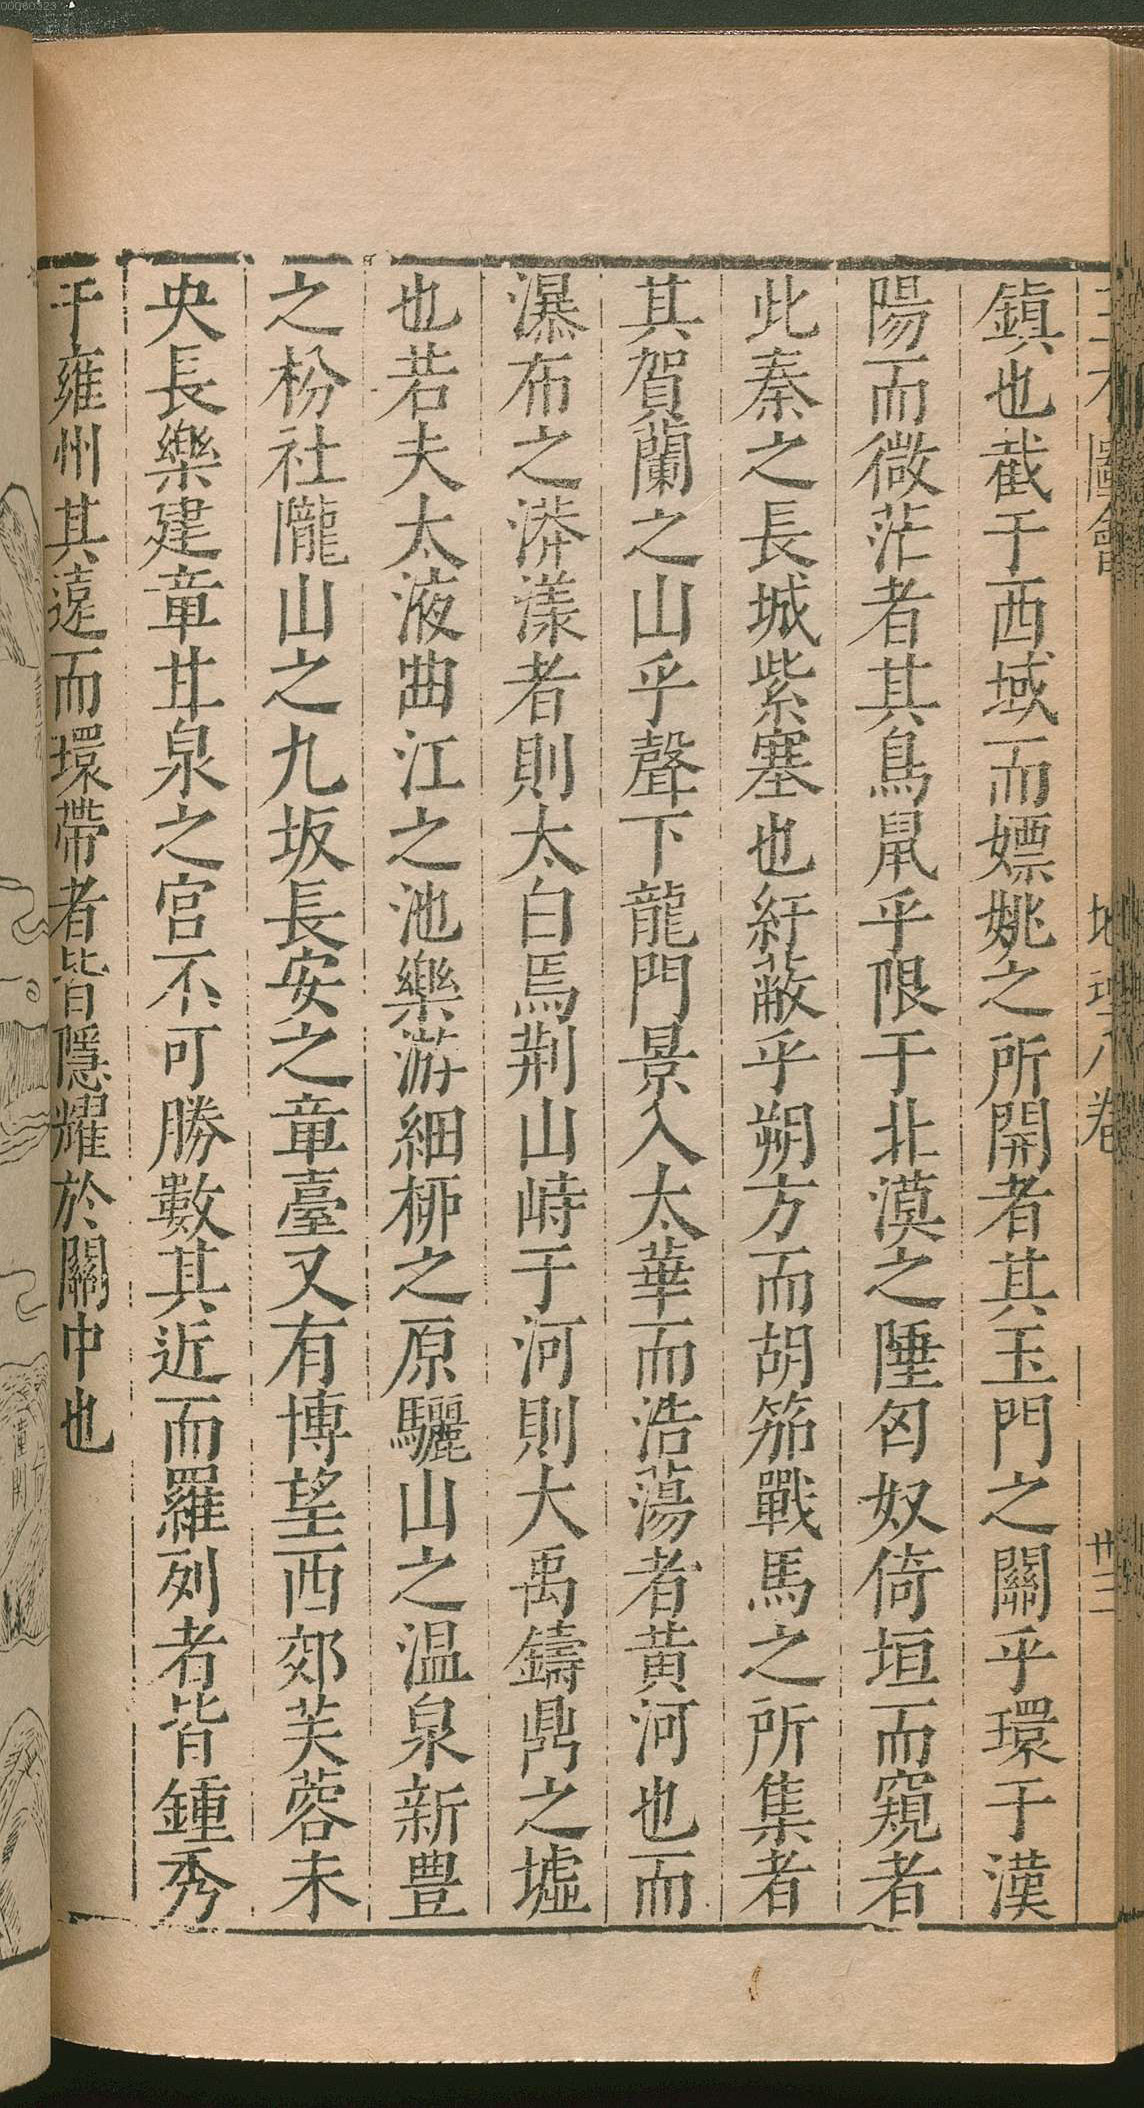 鎮也截于西域而嫖姚之所開者其玉門之關乎環于漢
陽而微茫者其鳥鼠乎限于北漠之陲匈奴倚垣而窺者
此秦之長城紫塞也紆蔽乎朔方而胡笳戰馬之所集者
其賀蘭之山乎聲下龍門景入太華而浩蕩者黄河也而
瀑布之漭漾者則太白焉荆山峙于河則大禹鑄鼎之墟
也若夫太液曲江之池樂游細柳之原驪山之温泉新豊
之枌社隴山之九坂長安之章臺又有博望西郊芙蓉未
央長樂建章甘泉之宮不可勝數其近而羅列者皆鍾秀
于雍州其遠而環帶者皆隱耀於關中也
圖會
卷
卅三
00060323
潼關